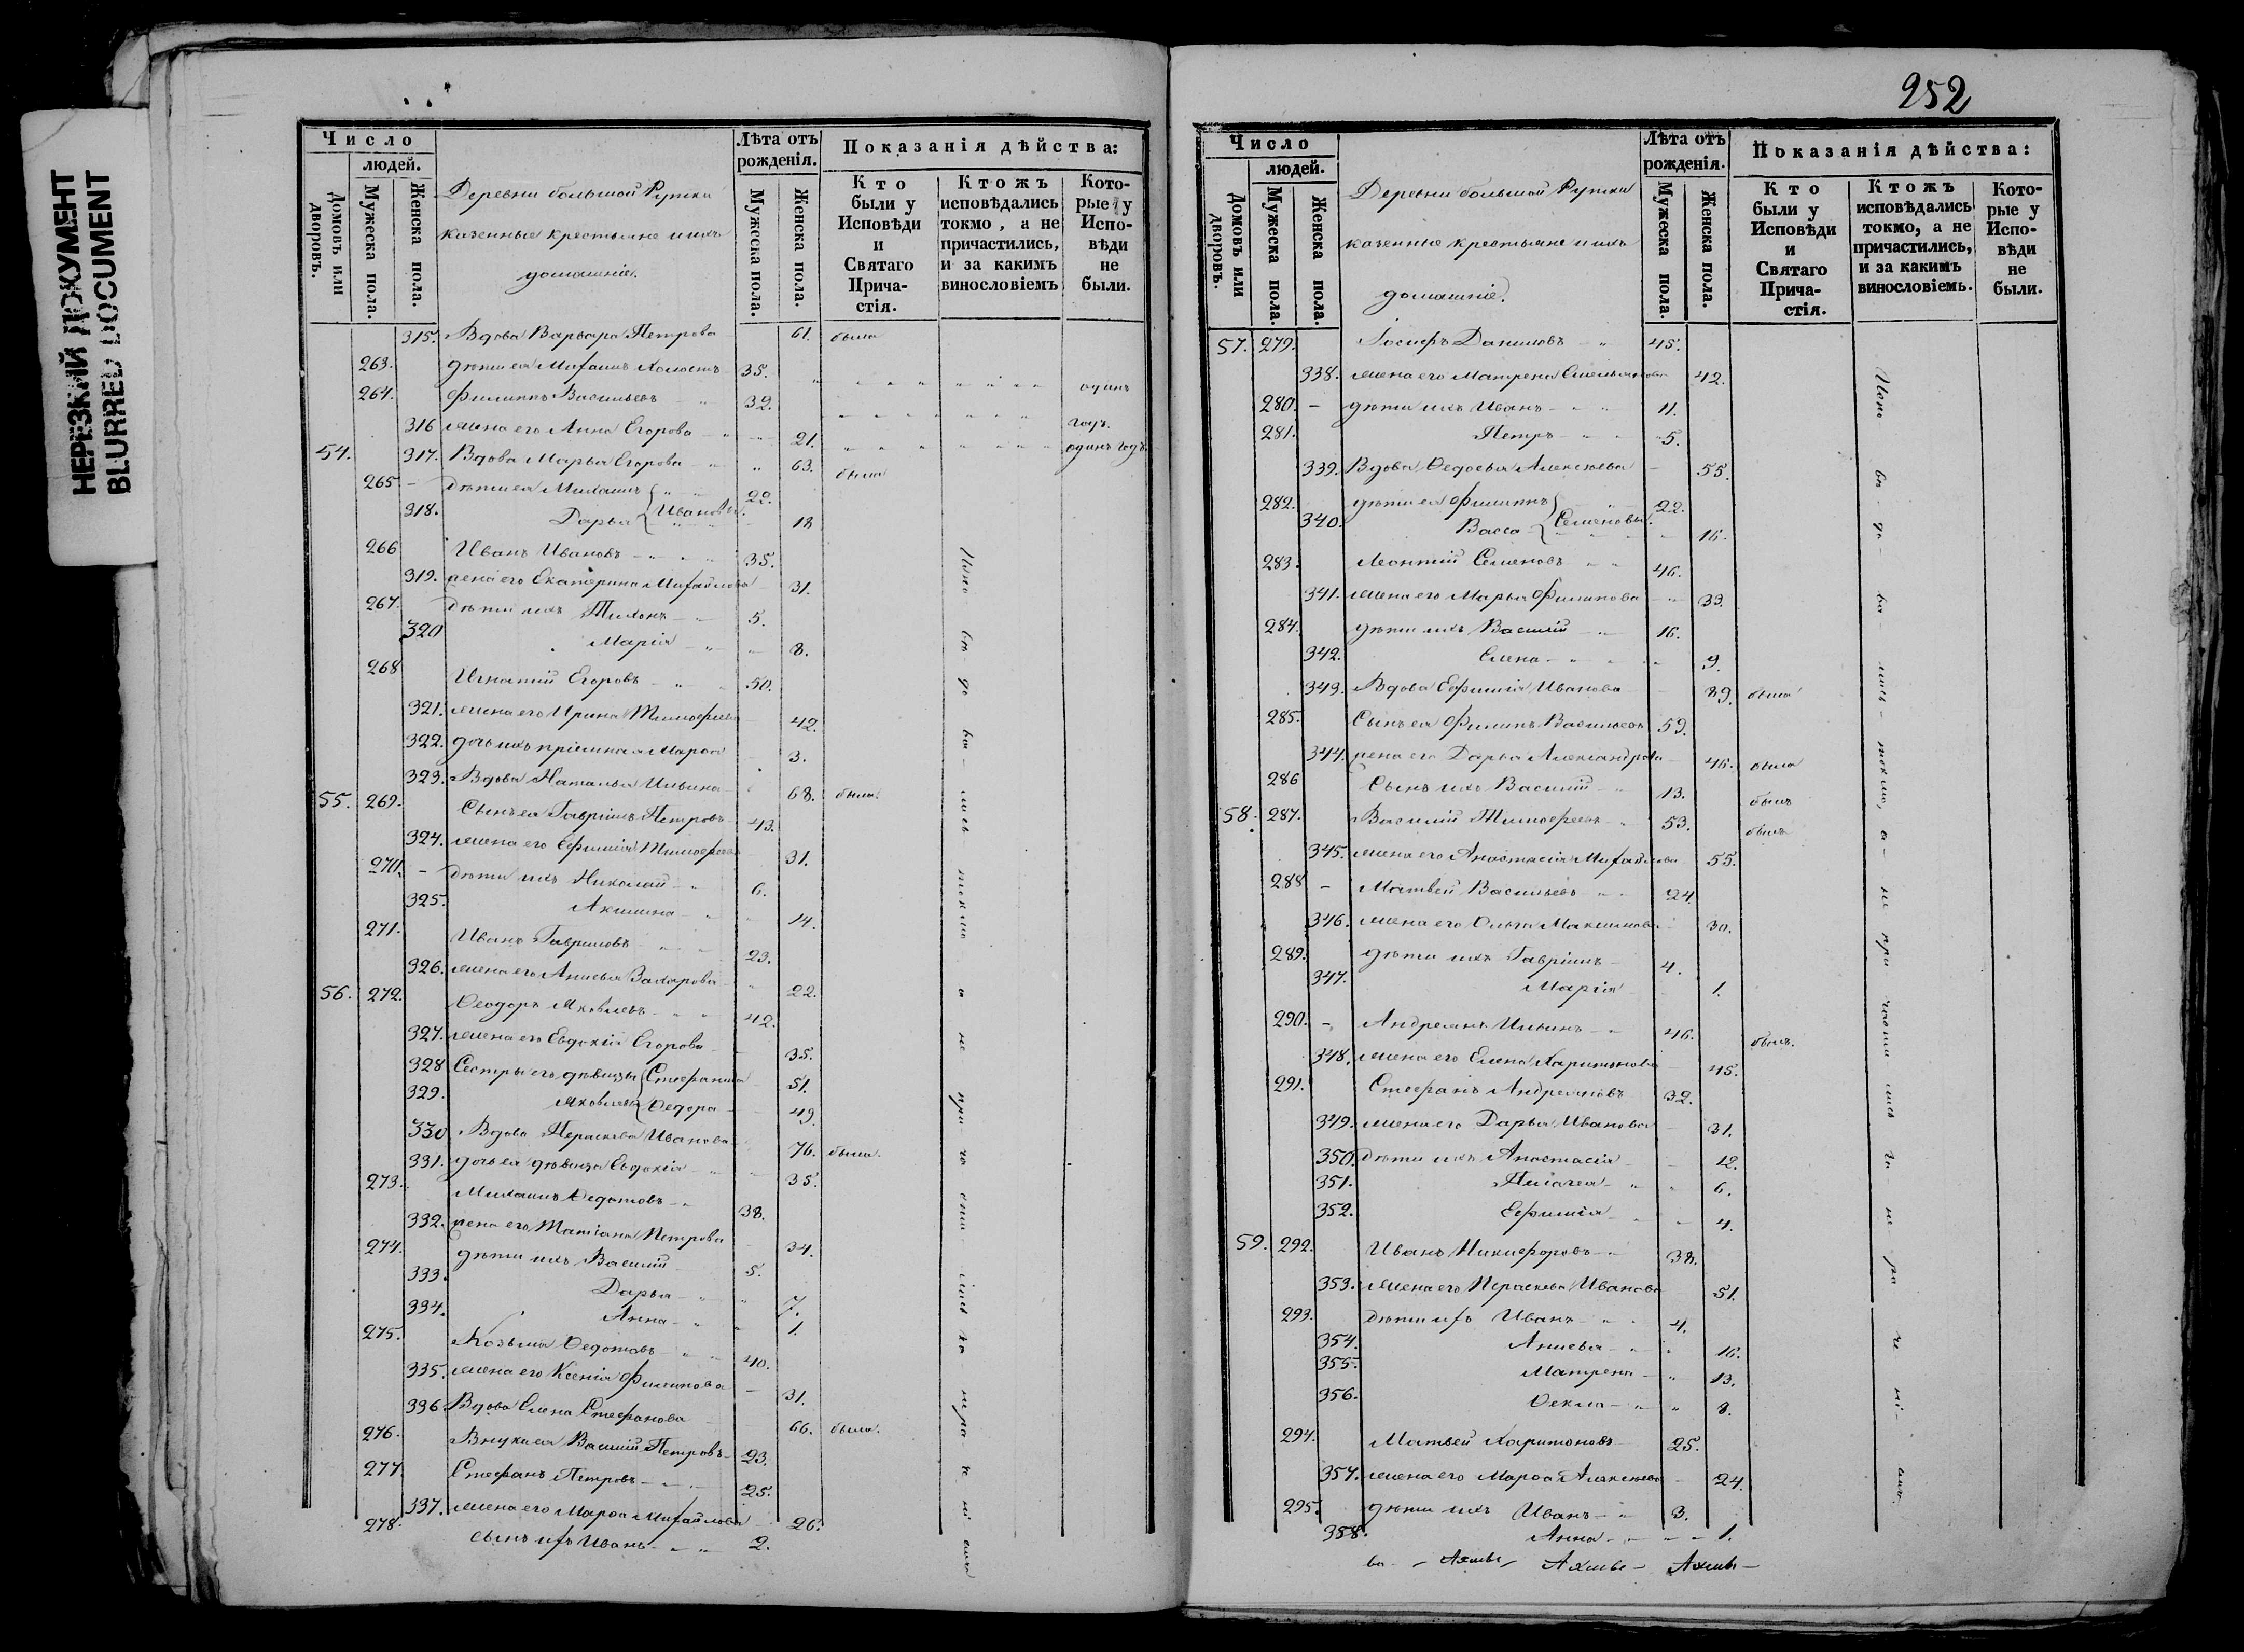 НЕРЕЗКИЙ ДОКУМЕНТ
BLURRED DOCUMENT
Число
людей.
Домовъ или дворовъ.
Мужеска пола.
Женска пола.
Деревни большой Рутки
казенные крестьяне и ихъ
домашніе.
Лѣта отъ рожденія.
Мужеска пола.
Женска пола.
Показанія дѣйства:
Кто были у Исповѣди и Святаго Прича-стія.
Ктожъ исповѣдались токмо, а не причастились, и за какимъ винословіемъ
Кото-рые у Испо-вѣди не были.
315. Вдова Варвара Петрова 61. была
263. дѣти ея Михаилъ холостъ 35. одинъ
264. Филиппъ Васильевъ 32. годъ.
316 жена его Анна Егорова 21. одинъ годъ.
54. 317. Вдова Марья Егорова 63. была
265 дѣти ея Михаилъ 22.
318. Дарья Ивановы. 18
266 Иванъ Ивановъ 35.
319. жена его Екатерина Михайлова 31.
267. дѣти ихъ Тихонъ 5.
320 Марія 8.
268 Игнатій Егоровъ 50.
321. жена его Ирина Тимофеева 42.
322. дочь ихъ пріемная Марѳа 3.
323. Вдова Наталья Ильина 68. была.
55. 269. Сынъ ея Гавріилъ Петровъ 43.
324. жена его Ефимія Тимофеева 31.
270. дѣти ихъ Николай 6.
325. Акилина 14.
271. Иванъ Гавриловъ 23.
326. жена его Анисья Захарова 22.
56. 272. Ѳеодоръ Яковлевъ 42.
327. жена его Евдокія Егорова 35.
328 Сестры его дѣвицы Стефанида 51.
329. Яковлевы Ѳедора 49.
330 Вдова Параскева Иванова 76. была.
331. дочь ея дѣвица Евдокія 35.
273. Михаилъ Ѳедотовъ 38.
332. жена его Татіана Петрова 34.
274. дѣти ихъ Василій 5.
333. Дарья 7.
334. Анна 1.
275. Козьма Ѳедотовъ 40.
335. жена его Ксенія Филипова 31.
336. Вдова Елена Стефанова 66. была.
276. Внуки ея Василій Петровъ 23.
277. Стефанъ Петровъ 25.
337. жена его Марѳа Михайлова 26.
278. сынъ ихъ Иванъ 2.
Испо вѣ до ва лись токмо а не при ча сти лись за нера че ні емъ
252
Число
людей.
Домовъ или дворовъ.
Мужеска пола.
Женска пола.
Деревни большой Рутки
казенные крестьяне и ихъ
домашніе.
Лѣта отъ рожденія.
Мужеска пола.
Женска пола.
Показанія дѣйства:
Кто были у Исповѣди и Святаго Прича-стія.
Ктожъ исповѣдались токмо, а не причастились, и за какимъ винословіемъ.
Кото-рые у Испо-вѣди не были.
57. 279. Іосифъ Даниловъ 45.
338. жена его Матрена Емельянова 42.
280. дѣти ихъ Иванъ 11.
281. Петръ 5.
339. Вдова Ѳедосья Алексѣева 55.
282. дѣти ея Филиппъ 22.
340. Васса Семеновы. 16.
283. Леонтій Семеновъ 46.
341. жена его Марья Филипова 33.
284. дѣти ихъ Василій 16.
342. Елена 9.
343. Вдова Ефимія Иванова 89. была
285. Сынъ ея Филипъ Васильевъ 59.
344. жена его Дарья Александрова 46. была
286 Сынъ ихъ Василій 13. былъ
58. 287. Василій Тимофеевъ 53. былъ
345. жена его Анастасія Михайлова 55.
288 Матвей Васильевъ 24.
346. жена его Ольга Максимова 30.
289. дѣти ихъ Гавріилъ 4.
347. Марія 1.
290. Андреянъ Ильинъ 46. былъ.
348. жена его Елена Харитонова 45.
291. Стефанъ Андреяновъ 32.
349. жена его Дарья Иванова 31.
350. дѣти ихъ Анастасія 12.
351. Пелагея 6.
352. Ефимія 4.
59. 292. Иванъ Никифоровъ 38.
353. жена его Параскева Иванова 51.
293. дѣти ихъ Иванъ 4.
354. Анисья 16.
355. Матрена 13.
356. Ѳекла 8.
294. Матвей Харитоновъ 25.
357. жена его Марѳа Алексѣева 24.
295. дѣти ихъ Иванъ 3.
358. Анна 1.
Испо вѣ до ва лись токмо, а не при части лись за не ра че ні емъ.